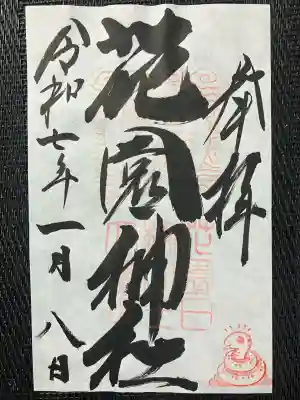 奉拝
花園神社
令和七年一月八日